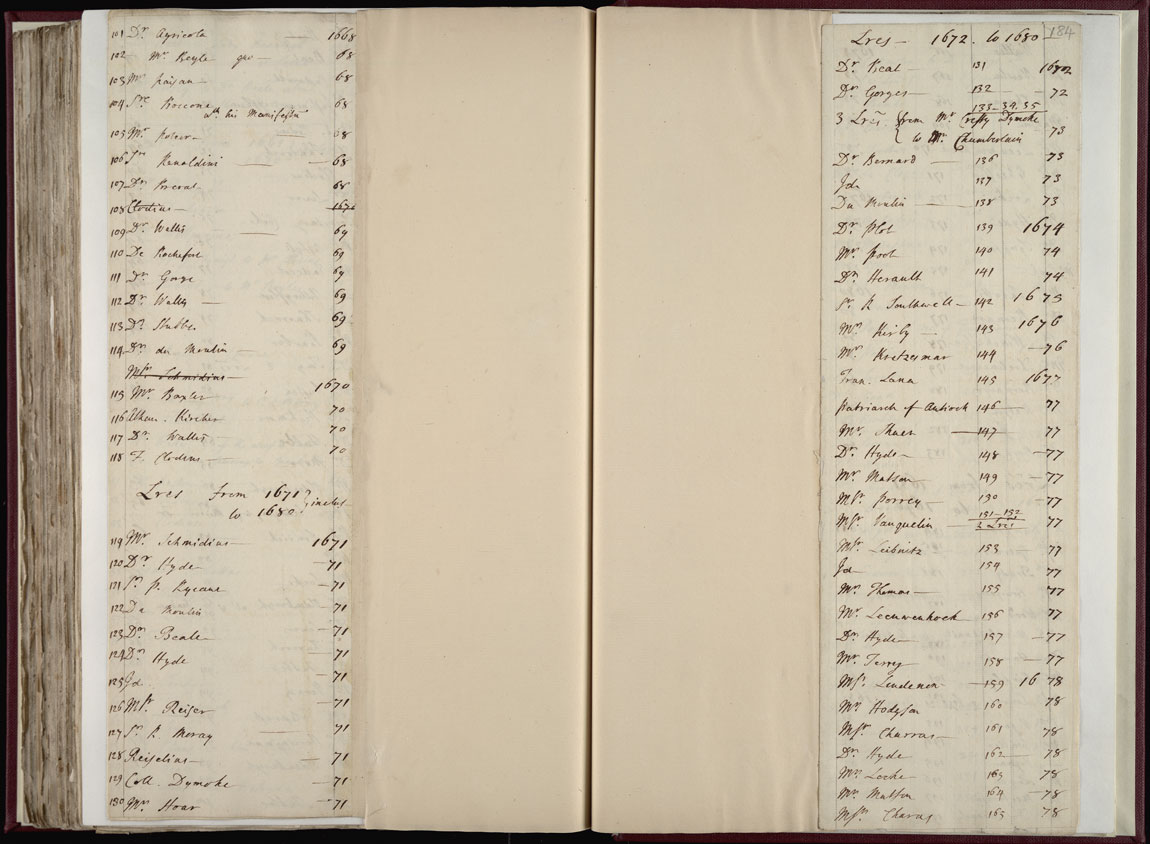 101 Dr. Agricola — 1668
102 Mr. Boyle — 68
103 Mr. — 68
104 Sr. Boccone 68
wth his Manifesto
105 Mr. — 68
106 Sr. Renaldini — 68
107 Dr. 68
108 — 167
109 Dr. Wallis — 69
110 De Rochefort 69
111 Dr. 69
112 Dr. Wallis — 69
113 Dr. Stubbe 69
114 Dr. du Moulin — 69
Msr. Schmidius
115 Mr. Baxter 1670
116 Athan. Kircher 70
117 Dr. Wallis 70
118 F. 70
Lres from 1671
to 1680 inclus.
119 Mr. Schmidius — 1671
120 Dr. Hyde — 71
121 Sr. P. Rycaut — 71
122 Du Moulin — 71
123 Dr. Beale — 71
124 Dr. Hyde — 71
125 Id. — 71
126 Msr. Reiser — 71
127 Sr. R. Moray — 71
128 Reiselius — 71
129 Coll. Dymoke — 71
130 Mr. Hoar — 71
184
Lres — 1672. to 1680
Dr. Beal — 131 1672
Dr. Gorges — 132 — 72
133-34.35
3 Lres from Mr. Dymoke
to Mr. Chamberlain 73
Dr. Bernard — 136 73
Id. 137 73
Du Moulin — 138 73
Dr. Plot 139 1674
Mr. 140 74
Dr. Herault 141 74
Sr. R. Southwell — 142 1675
Mr. Kirby — 143 1676
Mr. Kretzesmar 144 — 76
Fran. Lana 145 1677
Patriarch of Antioch 146 — 77
Mr. — 147 77
Dr. Hyde — 148 — 77
Mr. Matson 149 — 77
Msr. Porrey — 150 — 77
Msr. Vauquelin — 151-152 77
2 Lres
Msr. Leibnitz 153 77
Id. 154 77
Mr. Thomas — 155 77
Mr. Leeuwenhoek 156 77
Dr. Hyde — 157 — 77
Mr. Terrey — 158 — 77
Msr. Lendenen — 159 1678
Mr. Hodgson 160 78
Msr. Charras — 161 78
Dr. Hyde — 162 — 78
Mr. Locke — 163 78
Mr. Matson 164 — 78
Msr. Charas 165 78